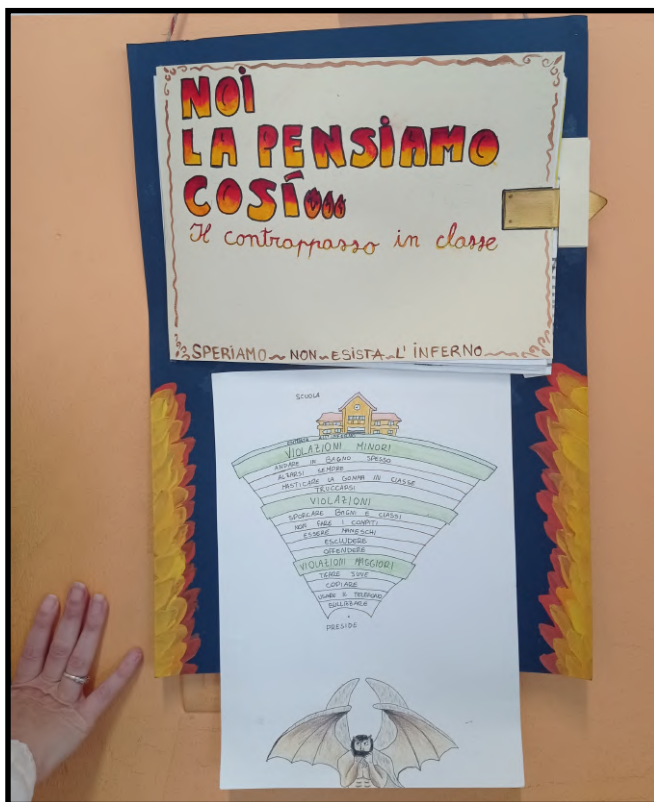 NOI
LA PENSIAMO
COSÍ
Il contrappasso in classe
SPERIAMO NON ESISTA L'INFERNO
SCUOLA
VIOLAZIONI MINORI
ANDARE IN BAGNO SPESSO
ALZARSI SEMPRE
MASTICARE LA GOMMA IN CLASSE
TRUCCARSI
VIOLAZIONI
SPORCARE BAGNI E CLASSI
NON FARE I COMPITI
ESSERE MANESCHI
ESCLUDERE
OFFENDERE
VIOLAZIONI MAGGIORI
COPIARE
BULLIZZARE
PRESIDE